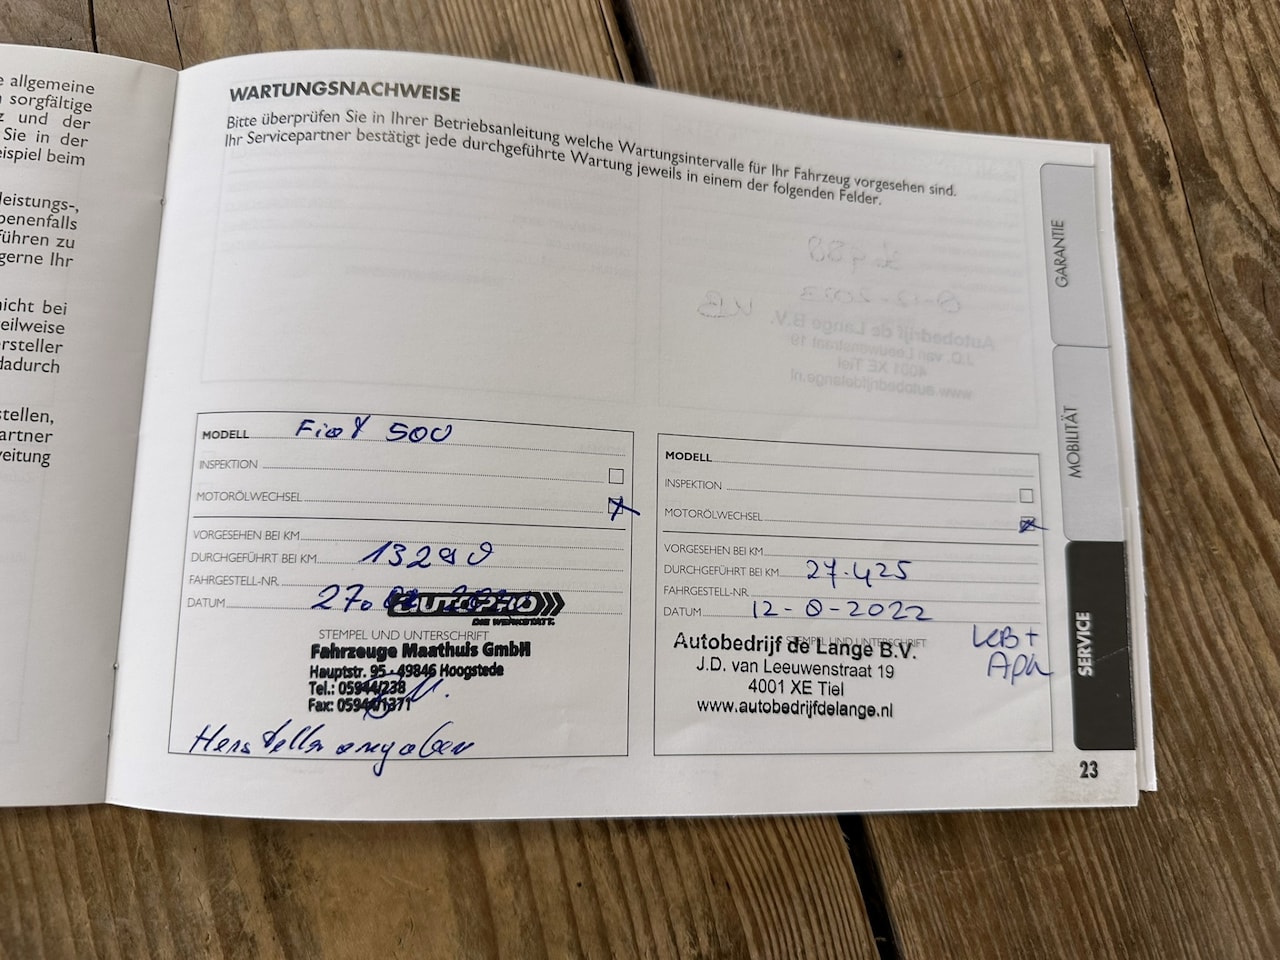 e allgemeine
sorgfältige
z und der
Sie in der
eispiel beim
leistungs-,
benenfalls
führen zu
gerne Ihr
nicht bei
teilweise
ersteller
dadurch
stellen,
artner
weitung
WARTUNGSNACHWEISE
Bitte überprüfen Sie in Ihrer Betriebsanleitung welche Wartungsintervalle für Ihr Fahrzeug vorgesehen sind.
Ihr Servicepartner bestätigt jede durchgeführte Wartung jeweils in einem der folgenden Felder.
MODELL Fiat 500
INSPEKTION
MOTORÖLWECHSEL
VORGESEHEN BEI KM
DURCHGEFÜHRT BEI KM 13290
FAHRGESTELL-NR.
DATUM 27.
AUTOPRO
DIE WERKSTATT.
STEMPEL UND UNTERSCHRIFT
Fahrzeuge Maathuis GmbH
Hauptstr. 95 - 49846 Hoogstede
Tel.: 05944/238
Fax: 05944/1371
Herstellerangaben
MODELL
INSPEKTION
MOTORÖLWECHSEL
VORGESEHEN BEI KM
DURCHGEFÜHRT BEI KM 27.425
FAHRGESTELL-NR.
DATUM 12-8-2022
STEMPEL UND UNTERSCHRIFT
Autobedrijf de Lange B.V.
J.D. van Leeuwenstraat 19
4001 XE Tiel
www.autobedrijfdelange.nl
GARANTIE
MOBILITÄT
SERVICE
23